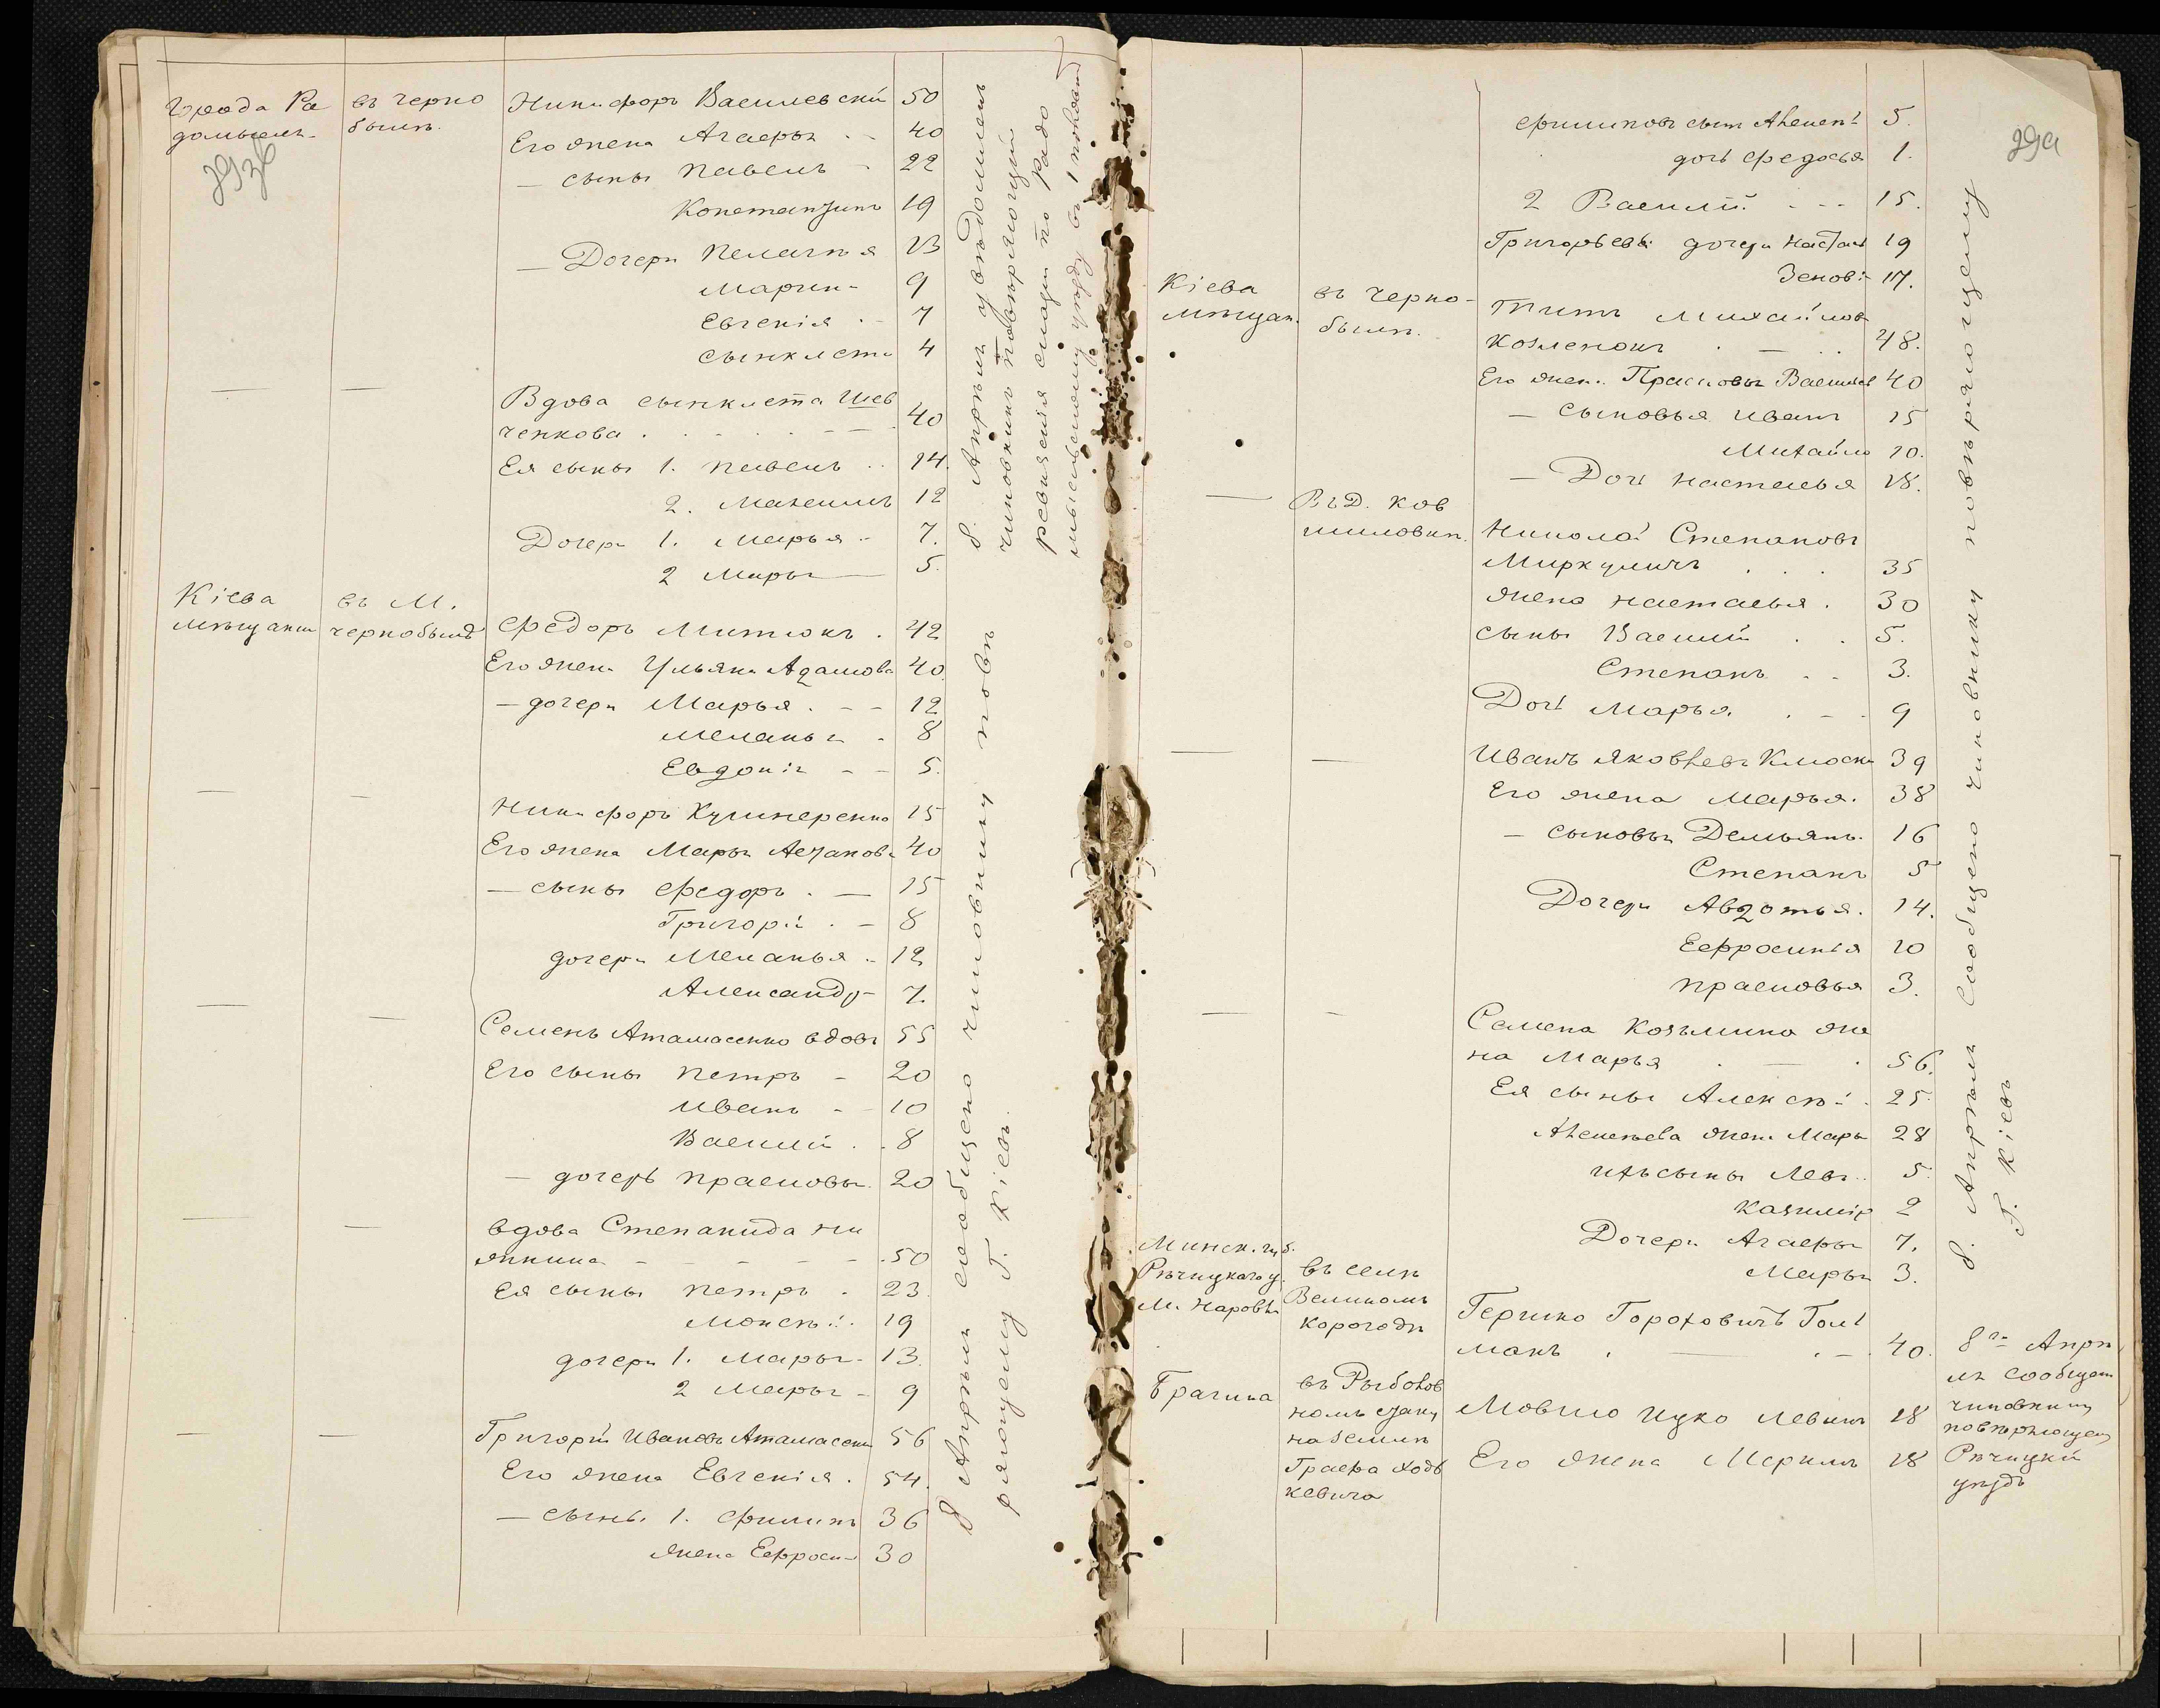 Города Ра
домысль
въ черно
былѣ.
Никифоръ Василевскій 50
Его жена Агафья 40
— сыны Павелъ 22
Константинъ 19
— Дочери Пелагія 13
Марин- 9
Евгенія 7
Сынклета 4
Вдова сынклета Шев
ченкова 40
Ея сыны 1. Павелъ 14.
2. Максимъ 12
Дочери 1. Марья 7.
2 Марья 5.
8. Апрѣля увѣдомленъ
чиновникъ повѣряющій
ревизскія сказки по Радо
мысльскому уѣзду
Кіева
мѣщанин
въ М.
чернобылѣ
Федоръ Митюкъ 42
Его жена Ульяна Адамова 40.
— дочери Марья 12
Меланья 8
Евдокія 5.
Никифоръ Кушнеренко 15
Его жена Марья 40
— сыны Федоръ 15
Григорій 8
дочери Меланья 12
Александр- 7.
Семенъ Атамасенко вдовъ 55
Его сыны Петръ 20
Иванъ 10
Василій 8
— дочерь Прасковья 20
вдова Степанида Ни
50
Ея сыны Петръ 23.
Моисѣй 19
дочери 1. Марья 13.
2 Марья 9
Григорій Ивановъ Атамасенко 56
Его жена Евгенія 54.
— сыны 1. Филипъ 36
жена Ефросин 30
8 Апрѣля сообщено чиновнику повѣ
ряющему Г. Кіевъ.
29а
Филиповъ сынъ 5.
дочь Федосья 1.
2 Василій 15.
Григорьевы дочери Настась 19
Зенові- 17.
Кіева
мѣщан.
въ черно-
былѣ.
Титъ Михайловъ
Козленокъ 48.
Его жена Прасковья Васильев 40
— Сыновья Иванъ 15
Михайло 10.
— Дочь Настасья 18.
Въ Д. Ков
шиловкѣ.
Николай Степановъ
Миркуличъ 35
Жена Настасья 30
сыны Василій 5.
Степанъ 3.
Дочь Марья 9
Иванъ Яковлевъ 39
Его жена Марья 38
— сыновья Демьянъ 16
Степанъ 5
Дочери Авдотья 14.
Ефросинья 10
Прасковья 3.
Семена Козьмина же
на Марья 56.
Ея сыны Алексѣй 25.
жена Марья 28
ихъ сыны Левъ 5.
Казиміръ 2
Дочери Агафья 7.
Марья 3.
8. Апрѣля сообщено чиновнику повѣряющему
Г. Кіевъ
Минск. губ.
Рѣчицкаго у.
М. Наровля
въ селѣ
Великомъ
Корогодѣ
Гершко Гороховичъ Голь
манъ 40.
8го Апрѣ
ля сообщен
чиновнику
повѣряющему
Рѣчицкій
уѣздъ
Брагина
въ
номъ
на землѣ
Графа Ходъ
кевича
Мовшо Ицко Левинъ 18
Его жена 18